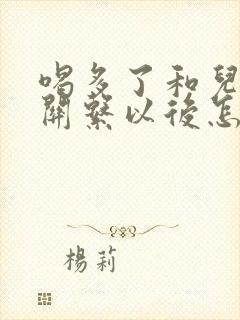 喝多了和兒
關繫以後怎
楊莉